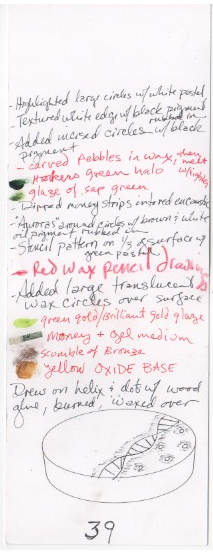 - Highlighted large circles w/ white pastel
- Textured white edge w/ black pigment rubbed in
- Added incised circles w/ black pigment
- carved pebbles in wax, then melt w/
- Hookers green halo
glaze of sap green
- Dipped money strips into red encaustic
- "Auroras" around circles w/ brown & white oil pigment rubbed in
- Stencil pattern on 1/3 surface w/ green pastel
- Red wax pencil drawing
Added large translucent wax circles over surface
green gold/Brilliant gold glaze
money + Gel medium
scumble of Bronze
yellow OXIDE BASE
Drew on helix & dots w/ wood glue, burned, waxed over
39